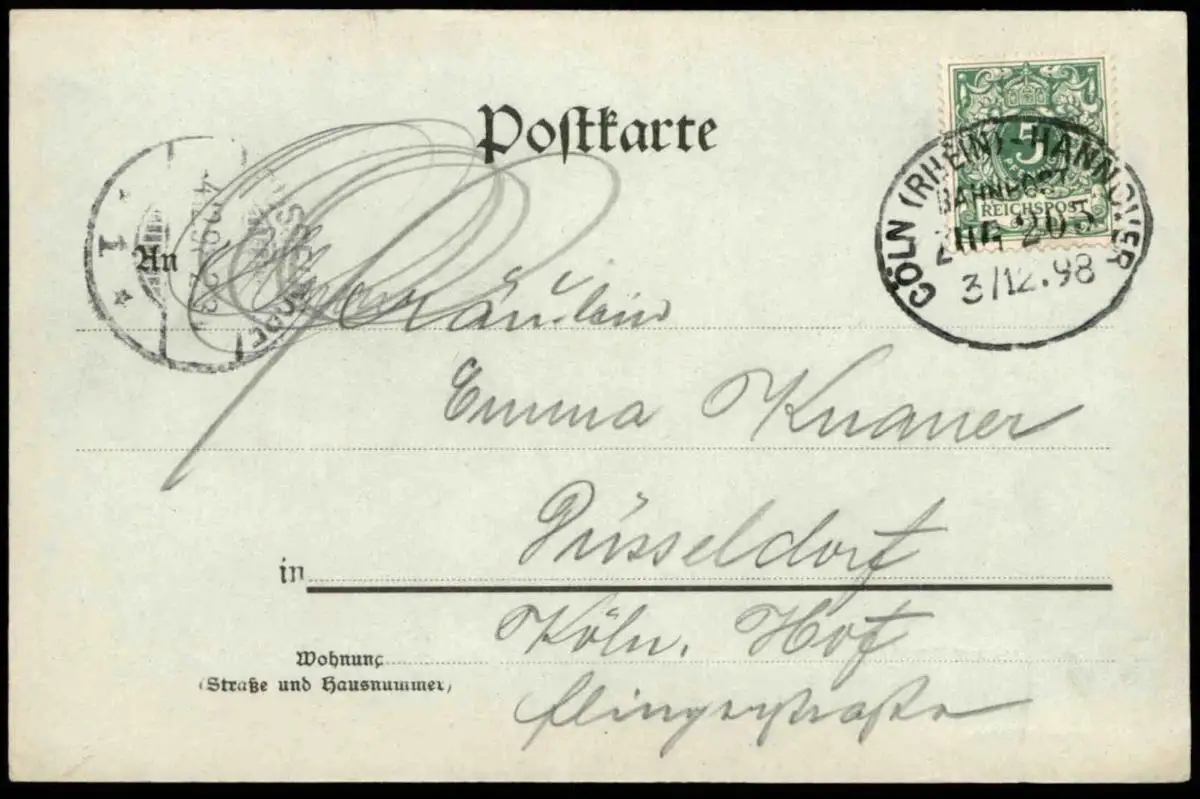 Postkarte
5
REICHSPOST
CÖLN (RHEIN)-HANNOVER
BAHNPOST
ZUG 203
3/12.98
1
An Fräulein
Emma Knauer
in Düsseldorf
Wohnung Köln. Hof
(Straße und Hausnummer)
Flingerstraße